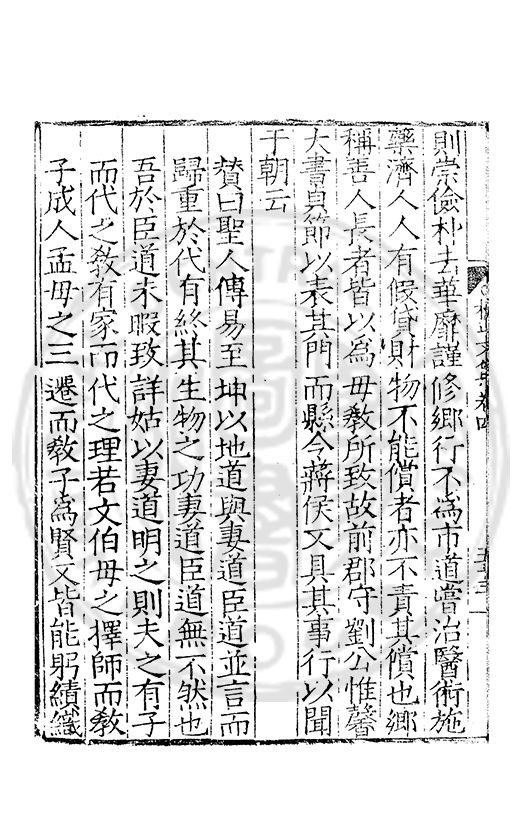 則崇儉朴去華靡謹修鄉行不為市道嘗治醫術施
藥濟人人有假貸財物不能償者亦不責其償也鄉
稱善人長者皆以為毋敎所致故前郡守劉公惟馨
大書貞節以表其門而縣令蔣侯又具其事行以聞
于朝云
贊曰聖人傳易至坤以地道與妻道臣道並言而
歸重於代有終其生物之功妻道臣道無不然也
吾於臣道未暇致詳姑以妻道明之則夫之有子
而代之敎有家而代之理若文伯毋之擇師而敎
子成人孟毋之三遷而敎子為賢又皆能躬績織